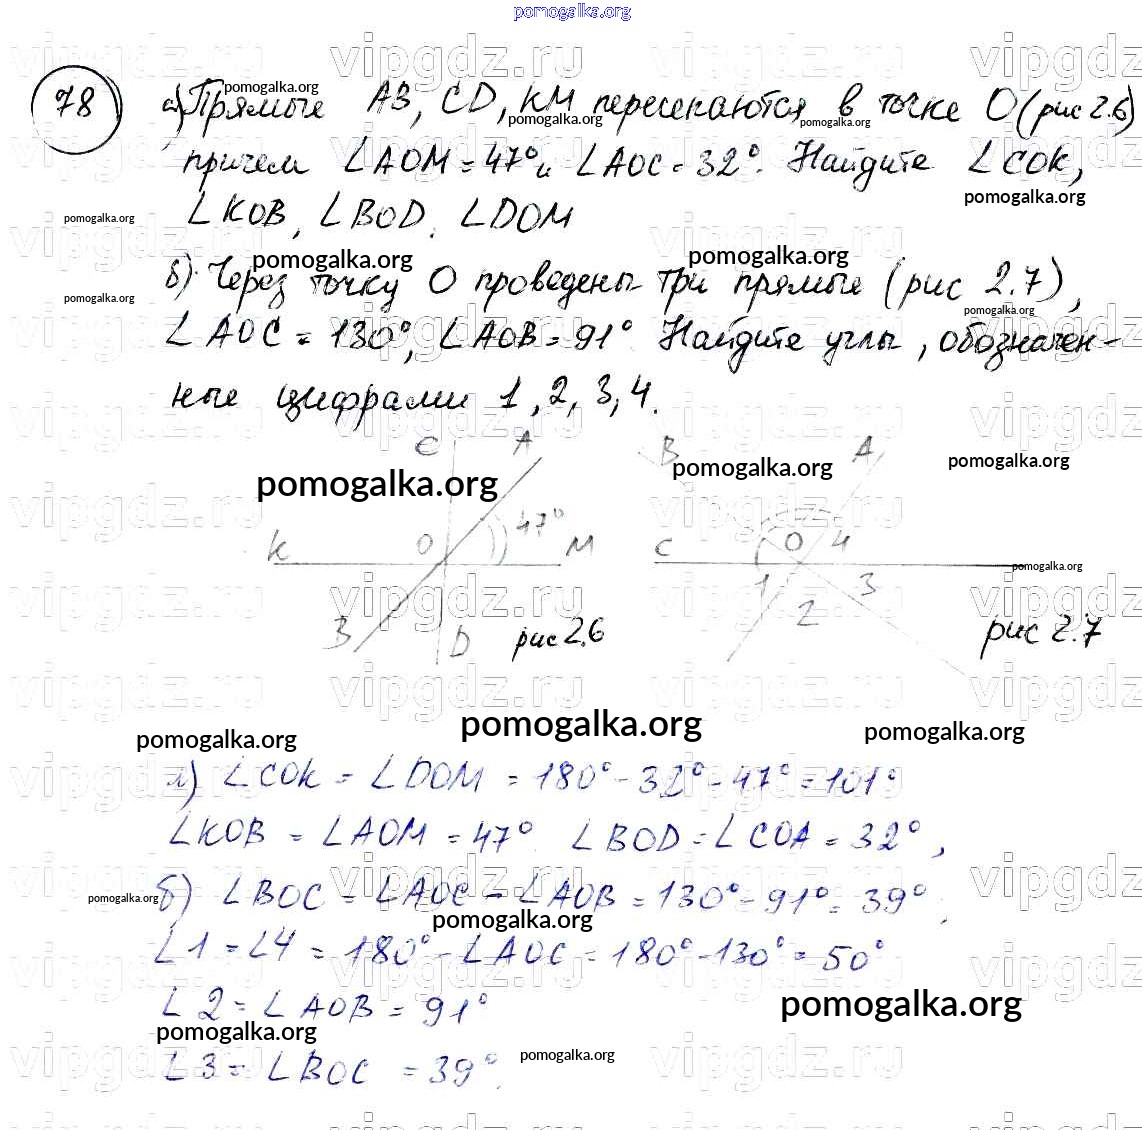 pomogalka.org
78
а) Прямые AB, CD, KM пересекаются в точке O (рис 2.6)
причем ∠AOM = 47° и ∠AOC = 32°. Найдите ∠COK,
∠KOB, ∠BOD, ∠DOM
б) Через точку O проведены три прямые (рис 2.7),
∠AOC = 130°, ∠AOB = 91° Найдите углы, обозначен-
ные цифрами 1, 2, 3, 4.
C A
K O 47° M
B D рис 2.6
B A
C O 4
1 2 3
рис 2.7
а) ∠COK = ∠DOM = 180° - 32° - 47° = 101°
∠KOB = ∠AOM = 47° ∠BOD = ∠COA = 32°,
б) ∠BOC = ∠AOC - ∠AOB = 130° - 91° = 39°,
∠1 = ∠4 = 180° - ∠AOC = 180° - 130° = 50°
∠2 = ∠AOB = 91°
∠3 = ∠BOC = 39°.
pomogalka.org
vipgdz.ru